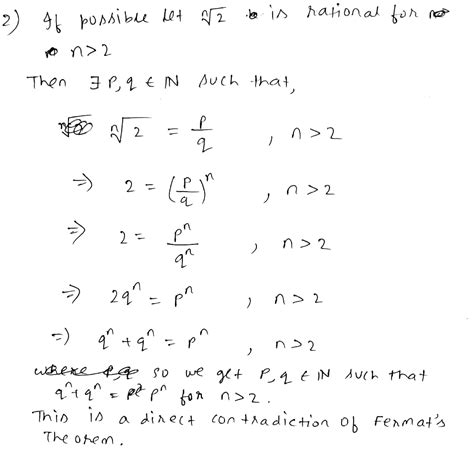 2) If possible let ⁿ√2 is rational for
n>2
Then ∃ P,q ∈ ℕ such that,
ⁿ√2 = p/q , n>2
⇒ 2 = (p/q)ⁿ , n>2
⇒ 2 = pⁿ/qⁿ , n>2
⇒ 2qⁿ = pⁿ , n>2
⇒) qⁿ+qⁿ = pⁿ , n>2
so we get P,q ∈ ℕ such that
qⁿ+qⁿ = pⁿ for n>2.
This is a direct contradiction of Fermat's
Theorem.